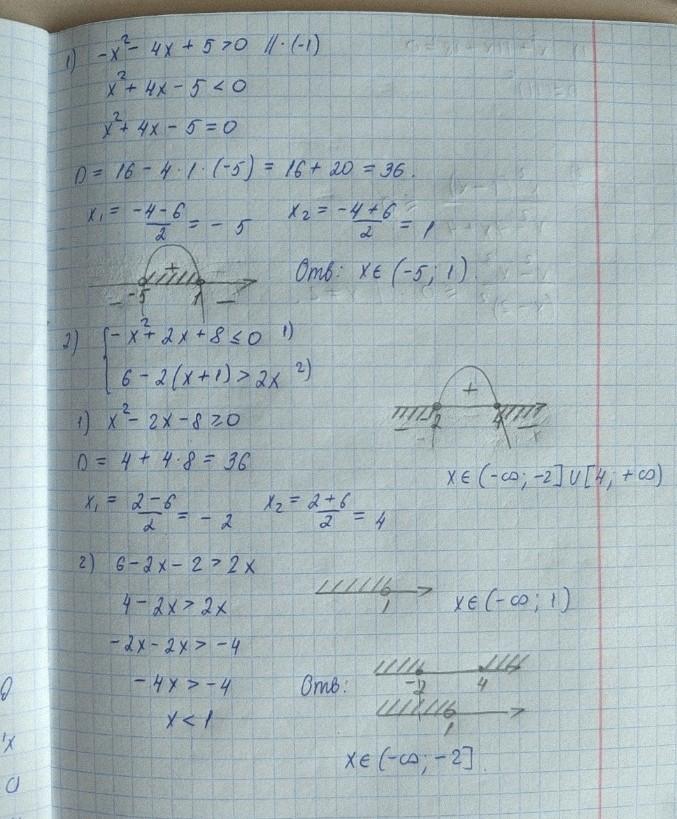 1) -x² - 4x + 5 > 0 //·(-1)
x² + 4x - 5 < 0
x² + 4x - 5 = 0
D = 16 - 4·1·(-5) = 16 + 20 = 36.
x₁ = (-4-6)/2 = -5 x₂ = (-4+6)/2 = 1
+
- -5 1 -
Отв: x ∈ (-5; 1).
2) { -x² + 2x + 8 ≤ 0 1)
6 - 2(x+1) > 2x 2)
1) x² - 2x - 8 ≥ 0
D = 4 + 4·8 = 36
x₁ = (2-6)/2 = -2 x₂ = (2+6)/2 = 4
+
- -2 4 - x
x ∈ (-∞; -2] ∪ [4; +∞)
2) 6 - 2x - 2 > 2x
4 - 2x > 2x
-2x - 2x > -4
-4x > -4
x < 1
1
x ∈ (-∞; 1)
Отв:
-2 4
1
x ∈ (-∞; -2]